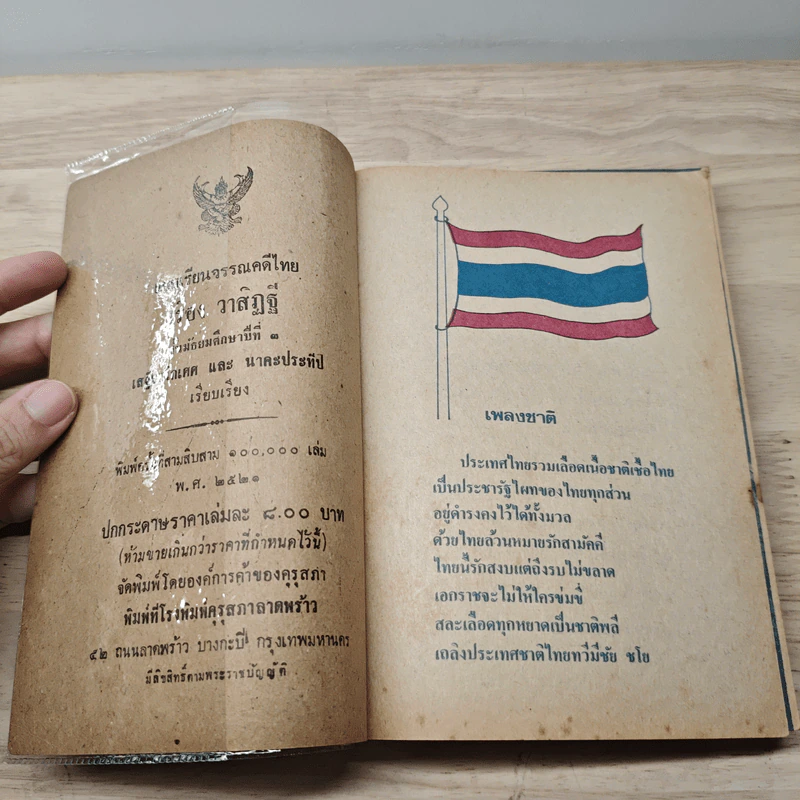 เรียนวรรณคดีไทย
วาสิฏฐี
มัธยมศึกษาปีที่ ๓
และ นาคะประทีป
เรียบเรียง
พิมพ์ครั้งที่สามสิบสาม ๑๐๐,๐๐๐ เล่ม
พ.ศ. ๒๕๒๑
ปกกระดาษราคาเล่มละ ๘.๐๐ บาท
(ห้ามขายเกินกว่าราคาที่กำหนดไว้นี้)
จัดพิมพ์โดยองค์การค้าของคุรุสภา
พิมพ์ที่โรงพิมพ์คุรุสภาลาดพร้าว
๕๒ ถนนลาดพร้าว บางกะปิ กรุงเทพมหานคร
มีลิขสิทธิ์ตามพระราชบัญญัติ
เพลงชาติ
ประเทศไทยรวมเลือดเนื้อชาติเชื้อไทย
เป็นประชารัฐไผทของไทยทุกส่วน
อยู่ดำรงคงไว้ได้ทั้งมวล
ด้วยไทยล้วนหมายรักสามัคคี
ไทยนี้รักสงบแต่ถึงรบไม่ขลาด
เอกราชจะไม่ให้ใครข่มขี่
สละเลือดทุกหยาดเป็นชาติพลี
เถลิงประเทศชาติไทยทวีมีชัย ชโย